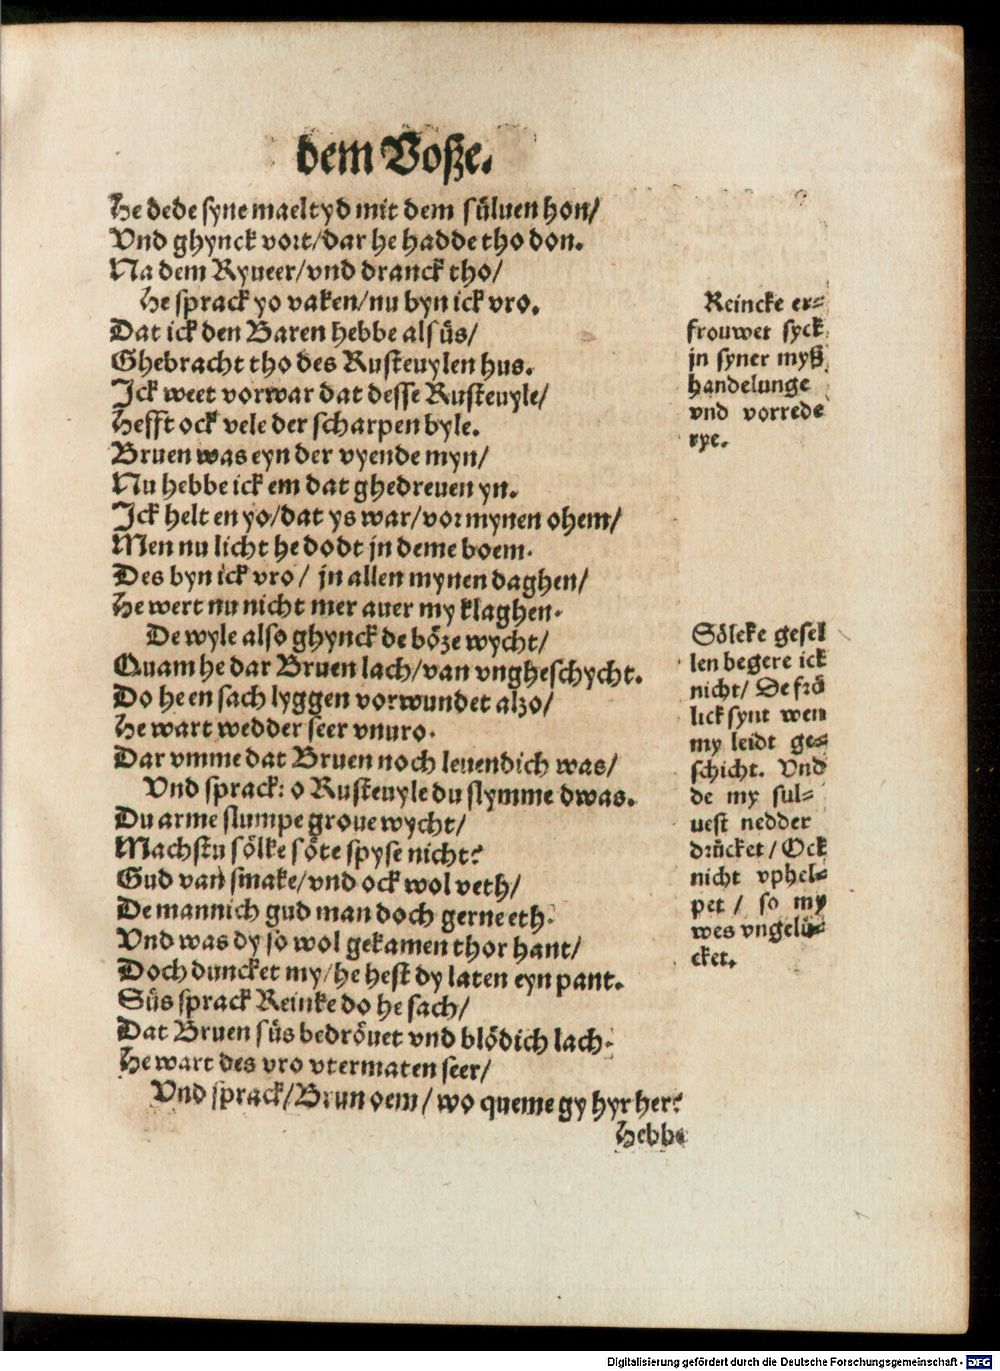 dem Voßze.
He dede syne maeltyd mit dem süluen hon/
Vnd ghynck vort/dar he hadde tho don.
Na dem Ryueer/vnd dranck tho/
He sprack yo vaken/nu byn ick vro.
Dat ick den Baren hebbe als üs/
Ghebracht tho des Rusteuylen hus.
Ick weet vorwar dat desse Rusteuyle/
Hefft ock vele der scharpen byle.
Bruen was eyn der vyende myn/
Nu hebbe ick em dat ghedreuen yn.
Ick helt en yo/dat ys war/vor mynen ohem/
Men nu licht he dodt jn deme boem.
Des byn ick vro / jn allen mynen daghen/
He wert nu nicht mer auer my klaghen.
De wyle also ghynck de böze wycht/
Quam he dar Bruen lach/van vngheschycht.
Do he en sach lyggen vorwundet alzo/
He wart wedder seer vnuro.
Dar vmme dat Bruen noch leuendich was/
Vnd sprack: o Rusteuyle du slymme dwas.
Du arme slumpe groue wycht/
Machstu sölke söte spyse nicht?
Gud van smake/vnd ock wol veth/
De mannich gud man doch gerne eth.
Vnd was dy so wol gekamen thor hant/
Doch duncket my/he hest dy laten eyn pant.
Süs sprack Reinke do he sach/
Dat Bruen süs bedröuet vnd blödich lach.
He wart des vro vtermaten seer/
Vnd sprack/Brun oem/wo queme gy hyr her?
Hebbe
Reincke er=
frouwet syck
jn syner myß
handelunge
vnd vorrede
rye.
Söleke gesel
len begere ick
nicht/ De frö
lick synt wen
my leidt ge=
schicht. Vnd
de my sul=
uest nedder
drücket / Ock
nicht vphel=
pet / so my
wes vngelü=
cket.
Digitalisierung gefördert durch die Deutsche Forschungsgemeinschaft - DFG